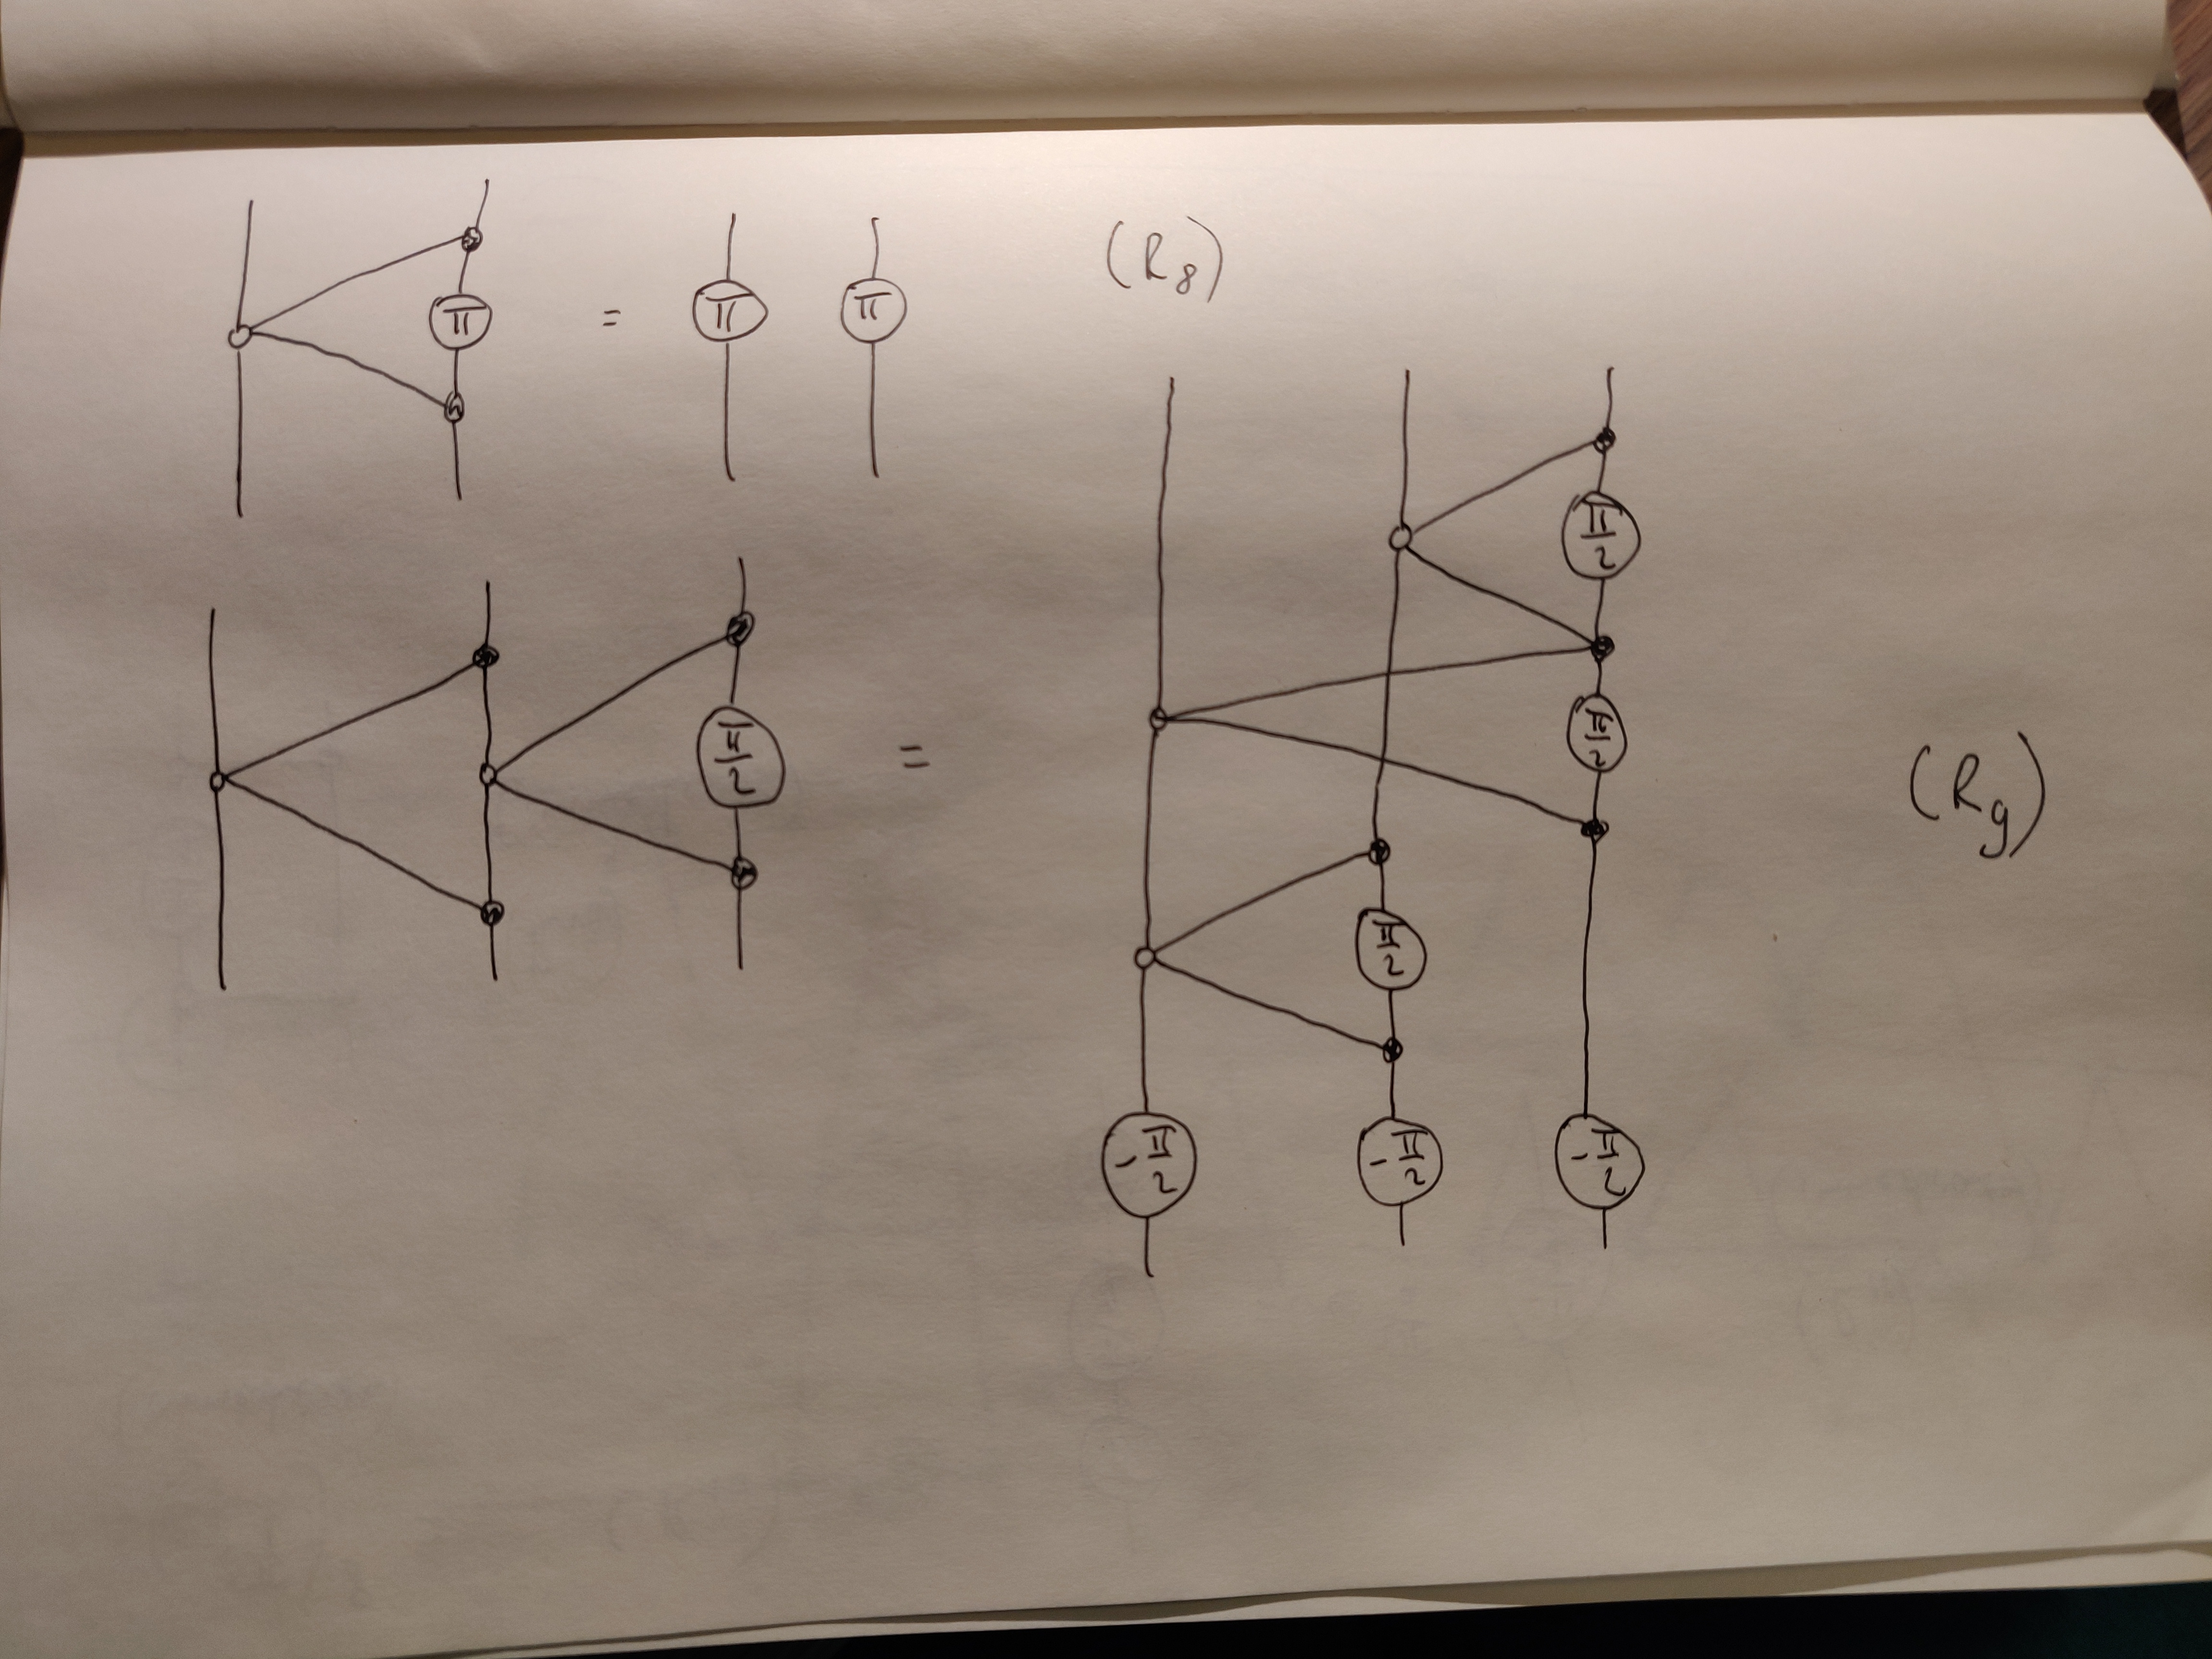 π = π π (R8)
π/2 = π/2
π/2
π/2 (R9)
-π/2 -π/2 -π/2